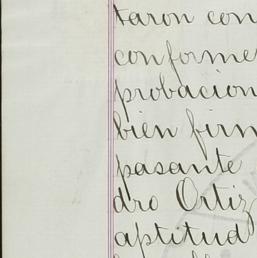 taron con
conforme
probacion
bien firm
pasante
dro Ortiz
aptitud